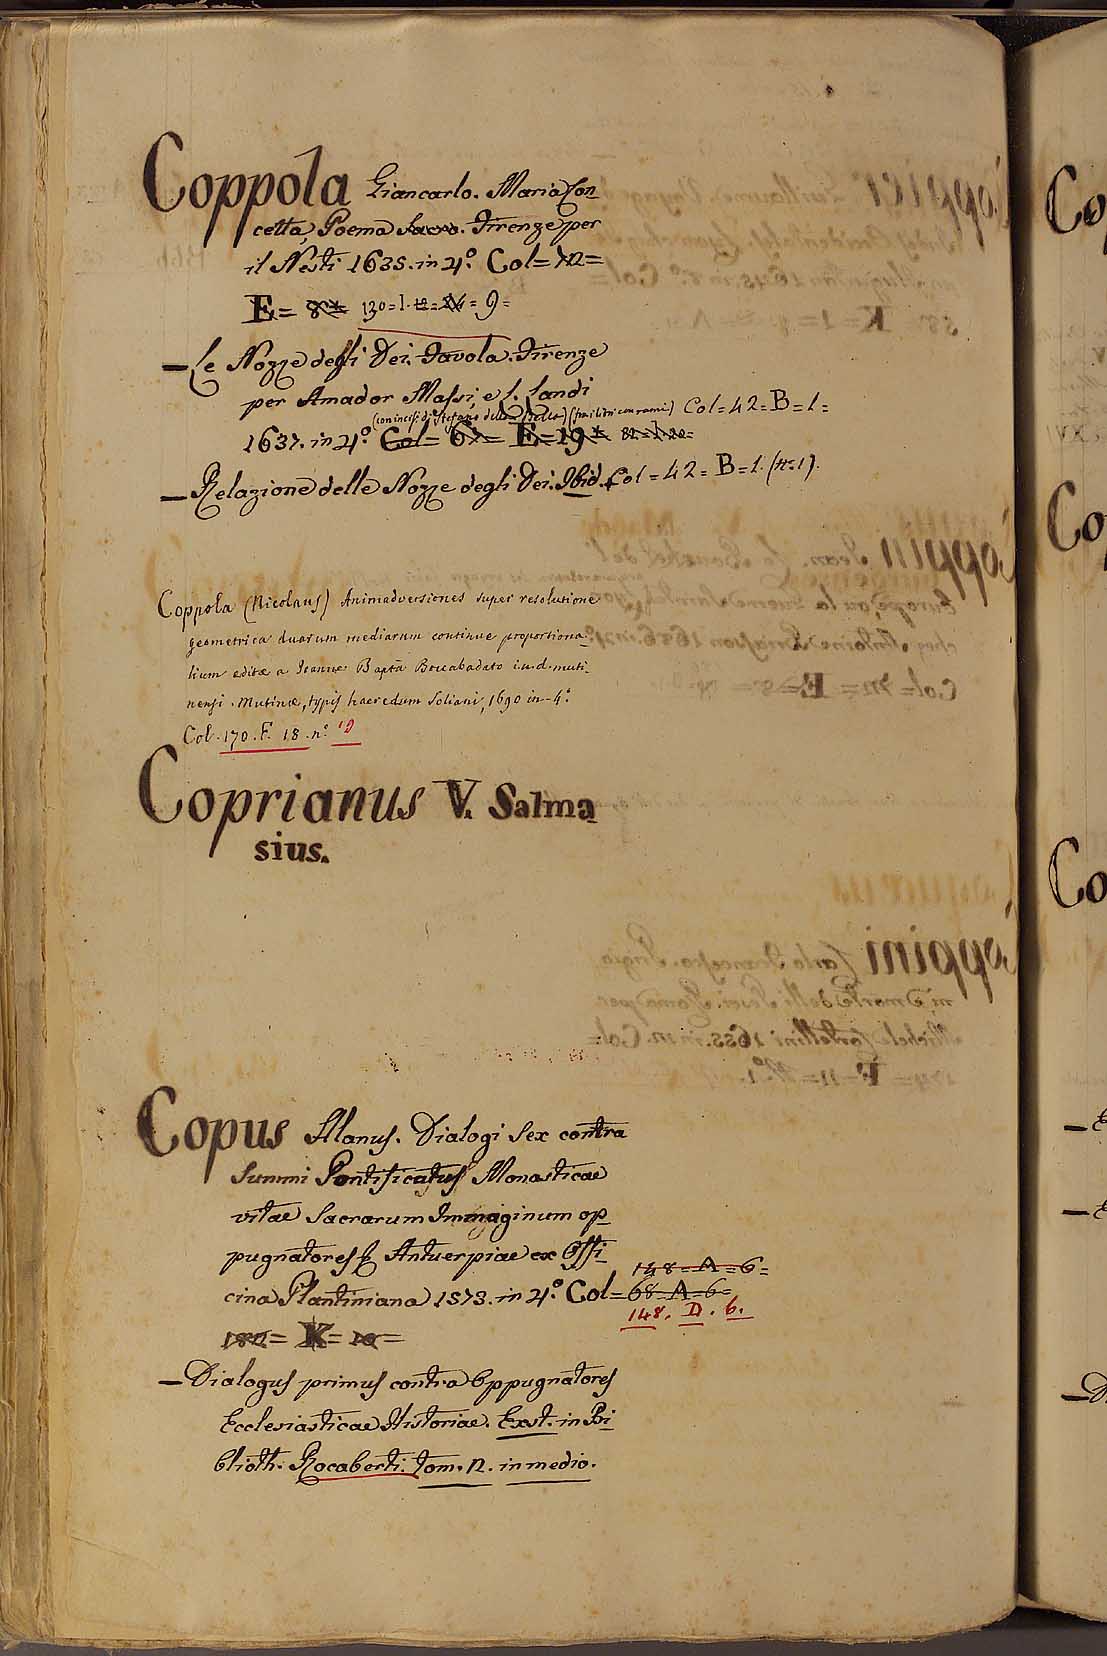 Coppola Giancarlo. Maria Con
cetta, Poema Sacro. Firenze per
il Nesti 1635. in 4.° Col=
E= 130=1. = 9=
—Le Nozze degli Dei. Favola. Firenze
per Amador Massi, e L. Landi
(con incis: di Stefano della Bella) (fra i libri con rami) Col=42=B=1=
1637. in 4.° Col= 67= E=19
—Relazione delle Nozze degli Dei. Ibid. Col=42=B=1. (n.1).
Coppola (Nicolaus) Animadversiones super resolutione
geometrica duarum mediarum continue proportiona-
lium editæ a Joanne Baptã Boccabadato i.u.d. muti-
nensi. Mutinæ, typis haeredum Soliani, 1690 in-4.°
Col. 170. F. 18. n.° 19
Coprianus V. Salma
sius.
Copus Alanus. Dialogi Sex contra
Summi Pontificatus Monasticae
vitae Sacrarum Immaginum op
pugnatores & Antuerpiae ex Offi
148=A=6=
cina Plantiniana 1573. in 4.° Col=68=A=6=
148. D. 6.
=K= =
—Dialogus primus contra Oppugnatores
Ecclesiasticae Historiae. Exst. in Bi
blioth. Rocaberti. Tom. in medio.
Co
Co
Co